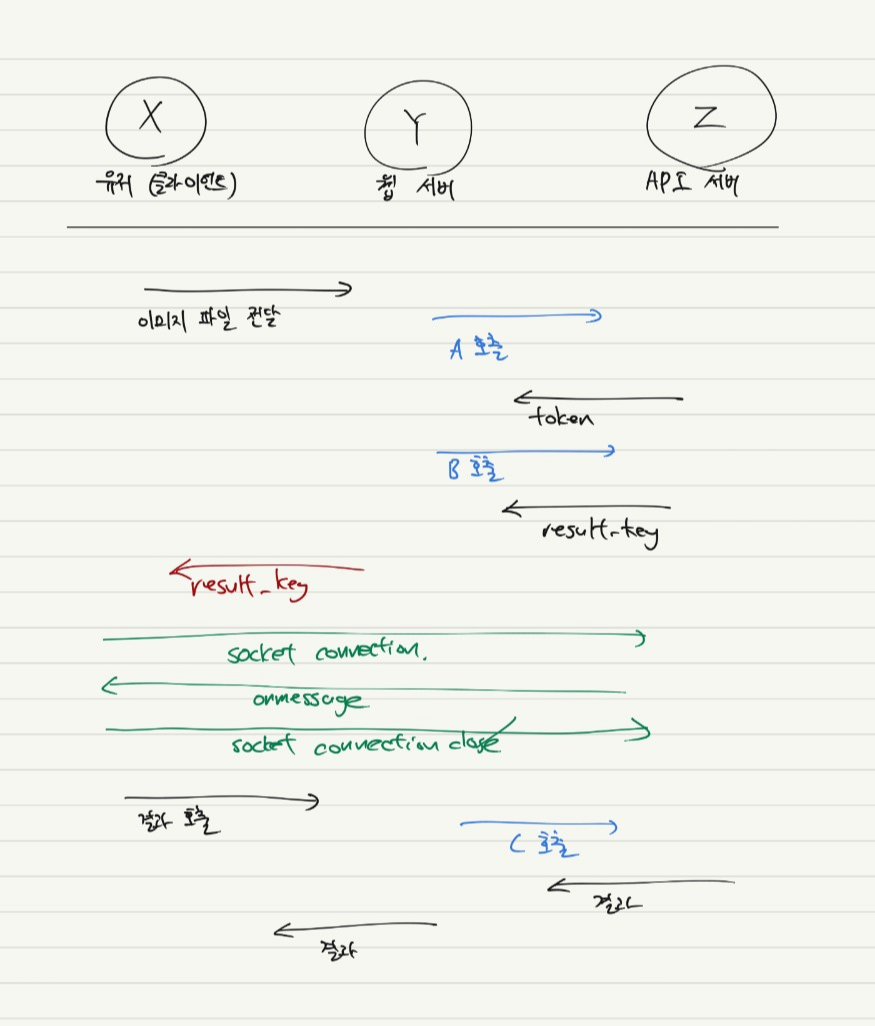 X
Y
Z
유저 (클라이언트)
웹 서버
API 서버
이미지 파일 전달
A 호출
token
B 호출
result_key
result_key
socket connection.
onmessage
socket connection close
결과 호출
C 호출
결과
결과